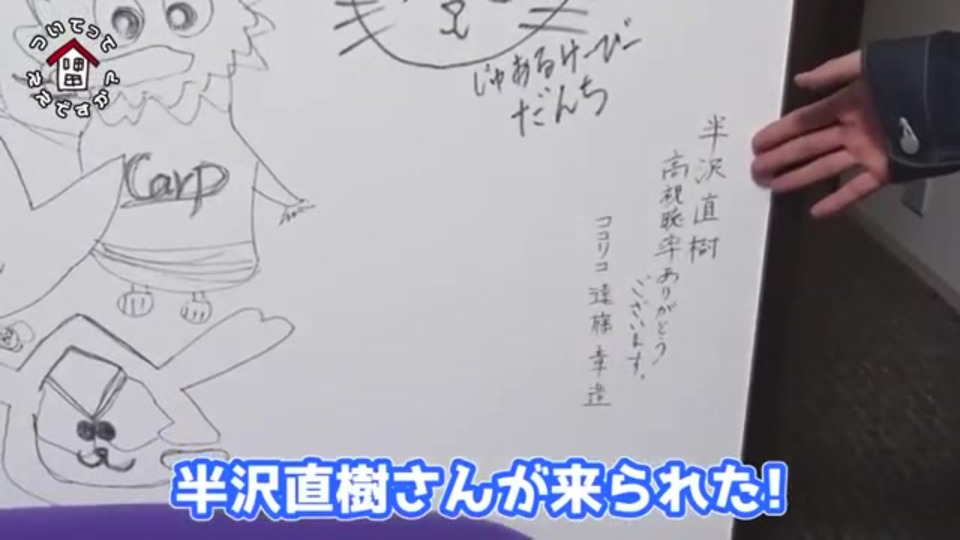 ついてって
ええですか
じゅあるけーびー
だんち
Carp
半沢直樹
高視聴率ありがとう
ございます。
ココリコ 遠藤章造
半沢直樹さんが来られた!